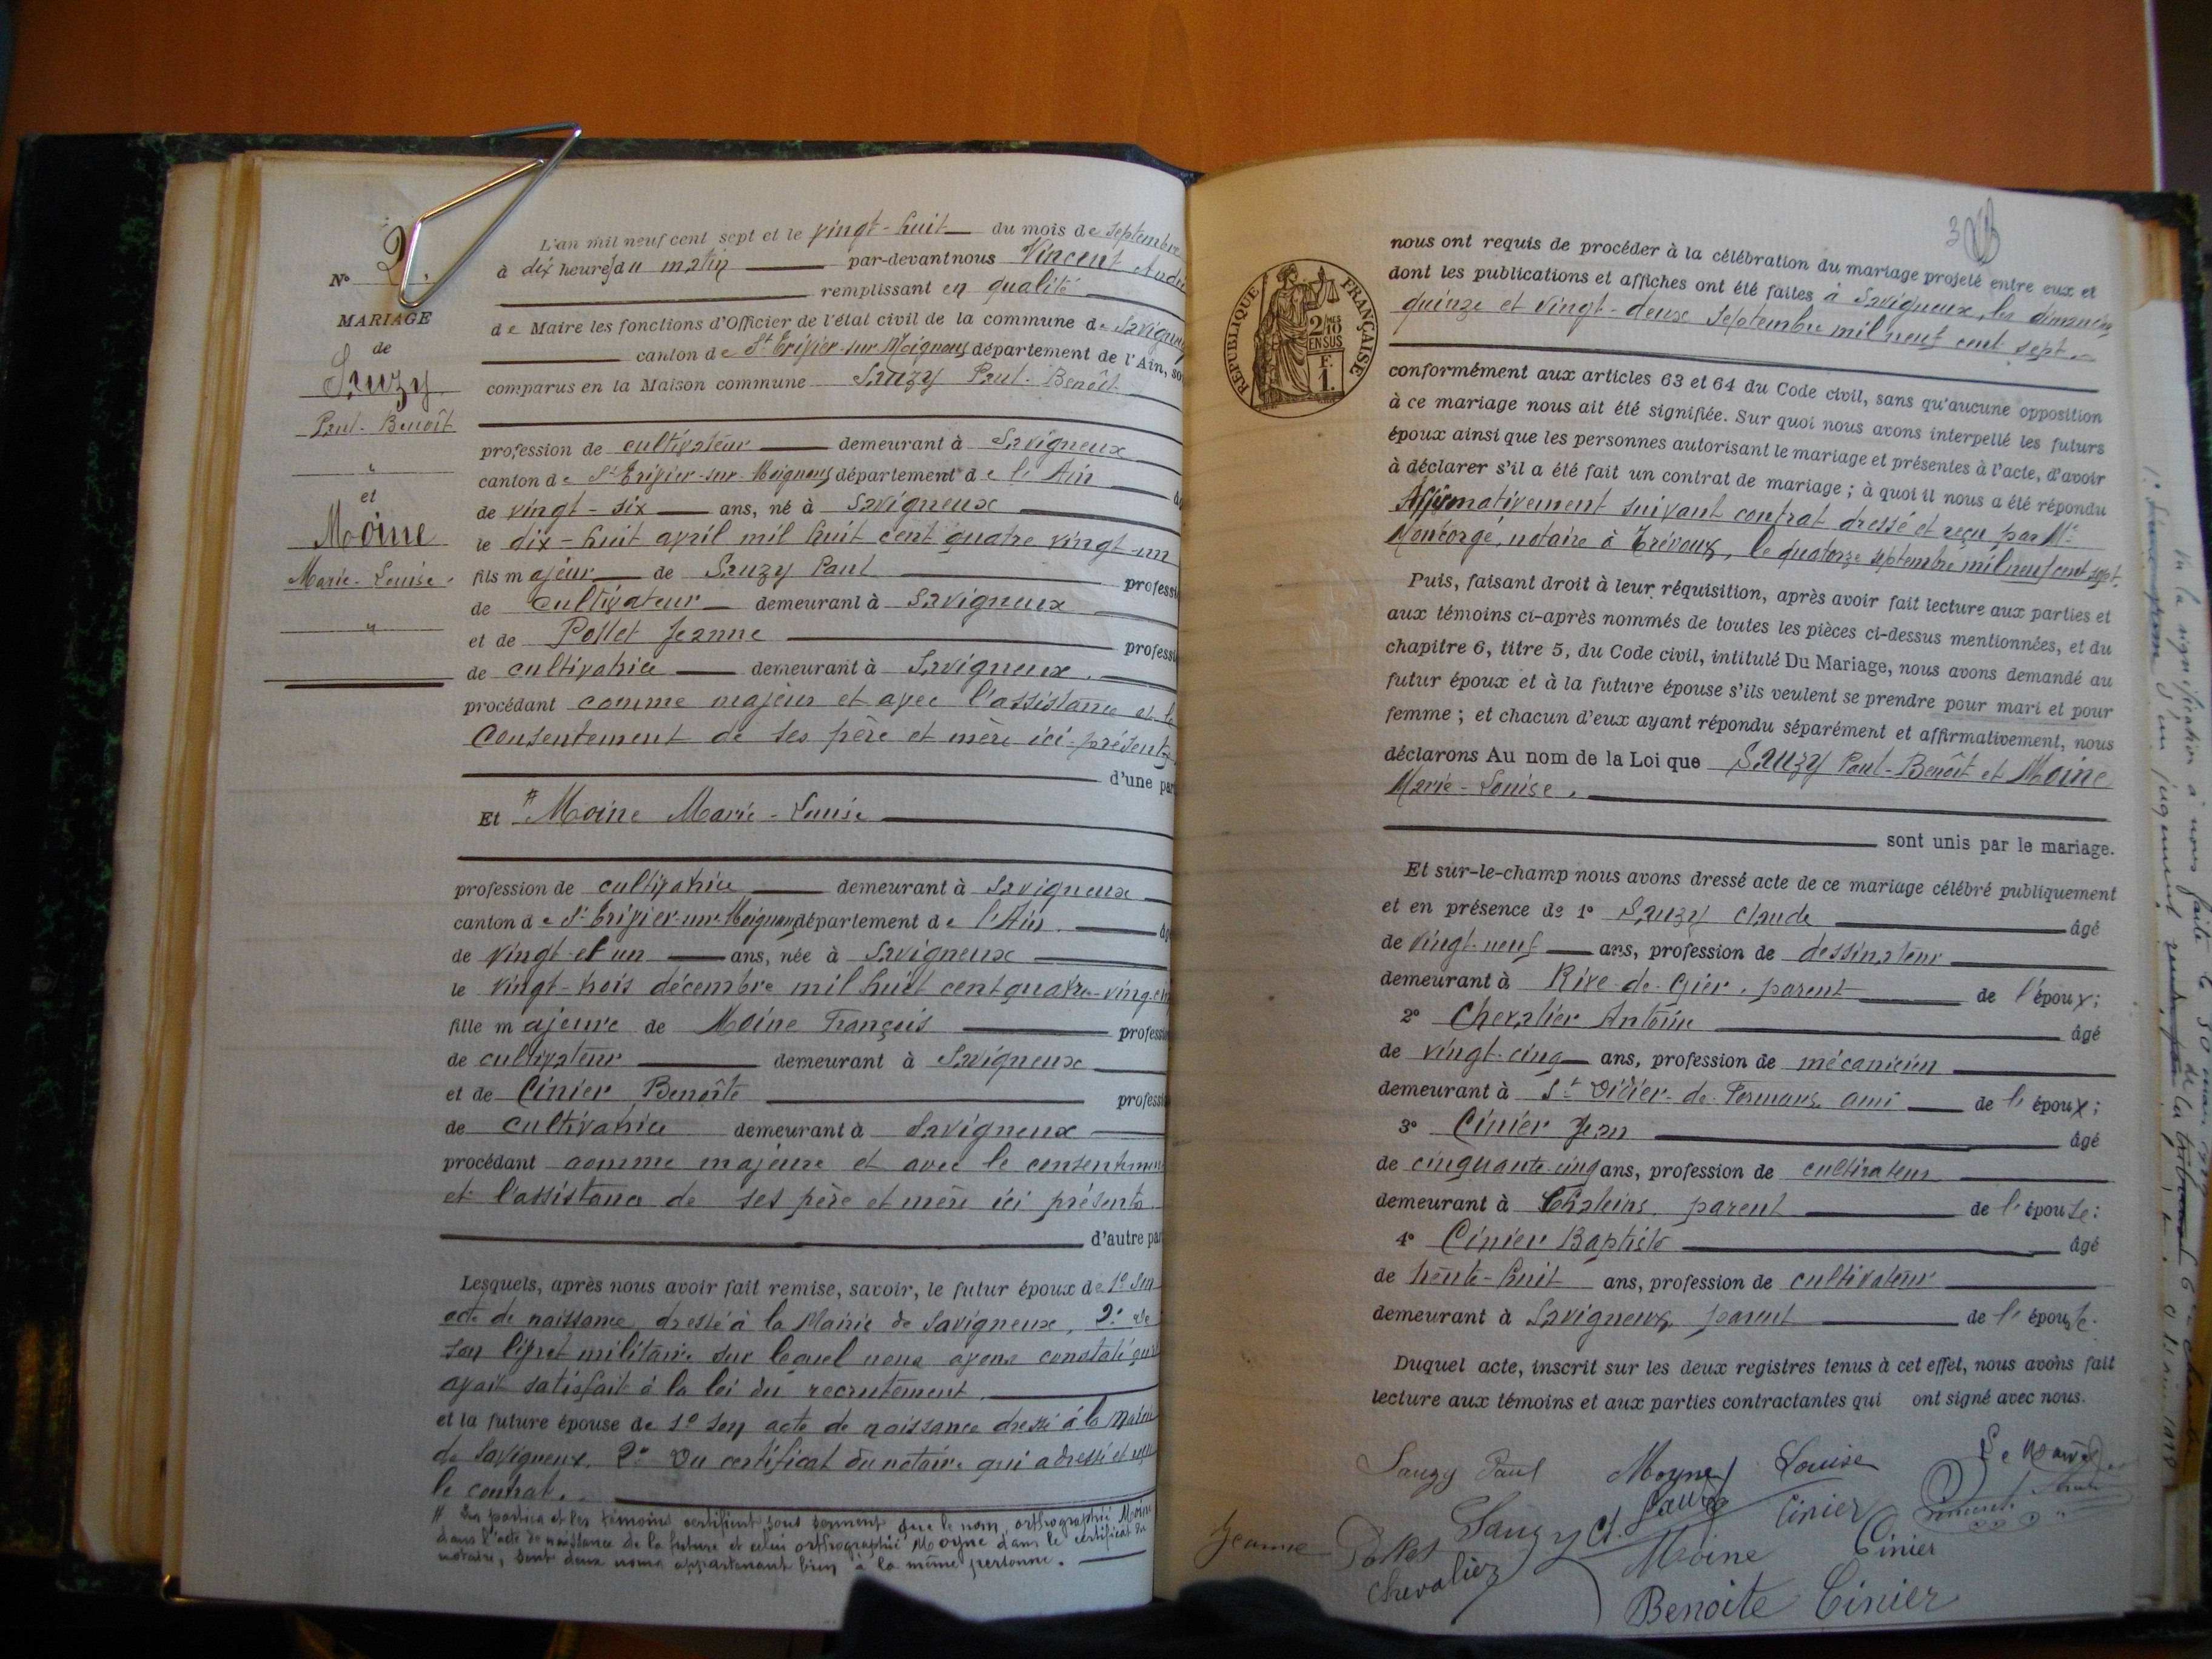 N° 2.
MARIAGE
de
Sauzy
Paul-Benoît
"
et
Moine
Marie-Louise.
"
L'an mil neuf cent sept et le vingt-huit du mois de septembre
à dix heures du matin par-devant nous Vincent
remplissant en qualité
de Maire les fonctions d'Officier de l'état civil de la commune de Savigneux
canton de St Trivier-sur-Moignans département de l'Ain, so
comparus en la Maison commune Sauzy Paul-Benoît
profession de cultivateur demeurant à Savigneux
canton de St Trivier-sur-Moignans département de l'Ain
de vingt-six ans, né à Savigneux
le dix-huit avril mil huit cent quatre vingt-un
fils majeur de Sauzy Paul professi
de cultivateur demeurant à Savigneux
et de Pollet Jeanne professi
de cultivatrice demeurant à Savigneux.
procédant comme majeur et avec l'assistance et le
consentement de ses père et mère ici-présents
d'une par
Et # Moine Marie-Louise
profession de cultivatrice demeurant à Savigneux
canton de St Trivier-sur-Moignans département de l'Ain.
de vingt et un ans, née à Savigneux
le vingt-trois décembre mil huit cent quatre-vingt-cinq
fille majeure de Moine François professi
de cultivateur demeurant à Savigneux
et de Cinier Benoîte professi
de cultivatrice demeurant à Savigneux
procédant comme majeure et avec le consentement
et l'assistance de ses père et mère ici présents.
d'autre par
Lesquels, après nous avoir fait remise, savoir, le futur époux de 1° Son
acte de naissance dressé à la Mairie de Savigneux, 2° de
son livret militaire sur lequel nous avons constaté qu'il
avait satisfait à la loi du recrutement.
et la future épouse de 1° son acte de naissance dressé à la Mairie
de Savigneux. 2° Du certificat du notaire qui a dressé et reçu
le contrat.
# Les parties et les témoins certifient sous serment que le nom, orthographié Moine
dans l'acte de naissance de la future et celui orthographié Moyne dans le certificat du
notaire, sont deux noms appartenant bien à la même personne.
3
RÉPUBLIQUE FRANÇAISE
2/10
EN SUS
F.
1.
nous ont requis de procéder à la célébration du mariage projeté entre eux et
dont les publications et affiches ont été faites à Savigneux, les dimanches
quinze et vingt-deux Septembre mil neuf cent sept.
conformément aux articles 63 et 64 du Code civil, sans qu'aucune opposition
à ce mariage nous ait été signifiée. Sur quoi nous avons interpellé les futurs
époux ainsi que les personnes autorisant le mariage et présentes à l'acte, d'avoir
à déclarer s'il a été fait un contrat de mariage ; à quoi il nous a été répondu
Affirmativement suivant contrat dressé et reçu par Me
Montorgé, notaire à Trévoux, le quatorze septembre mil neuf cent sept.
Puis, faisant droit à leur réquisition, après avoir fait lecture aux parties et
aux témoins ci-après nommés de toutes les pièces ci-dessus mentionnées, et du
chapitre 6, titre 5, du Code civil, intitulé Du Mariage, nous avons demandé au
futur époux et à la future épouse s'ils veulent se prendre pour mari et pour
femme ; et chacun d'eux ayant répondu séparément et affirmativement, nous
déclarons Au nom de la Loi que Sauzy Paul-Benoît et Moine
Marie-Louise.
sont unis par le mariage.
Et sur-le-champ nous avons dressé acte de ce mariage célébré publiquement
et en présence de 1° Sauzy Claude âgé
de vingt-neuf ans, profession de dessinateur
demeurant à Rive-de-Gier, parent de l'époux;
2° Chevalier Antoine âgé
de vingt-cinq ans, profession de mécanicien
demeurant à St Didier-de-Formans, ami de l'époux;
3° Cinier Jean âgé
de cinquante-cinq ans, profession de cultivateur
demeurant à Chaleins, parent de l'épouse:
4° Cinier Baptiste âgé
de trente-huit ans, profession de cultivateur
demeurant à Savigneux, parent de l'épouse.
Duquel acte, inscrit sur les deux registres tenus à cet effet, nous avons fait
lecture aux témoins et aux parties contractantes qui ont signé avec nous.
Sauzy Paul Moyne Louise Le Maire
Sauzy Cl. Sauzy Cinier Vincent
Jeanne Pollet Moine Cinier
Chevalier
Benoite Cinier
Vu la signification à nous faite le 30 mai